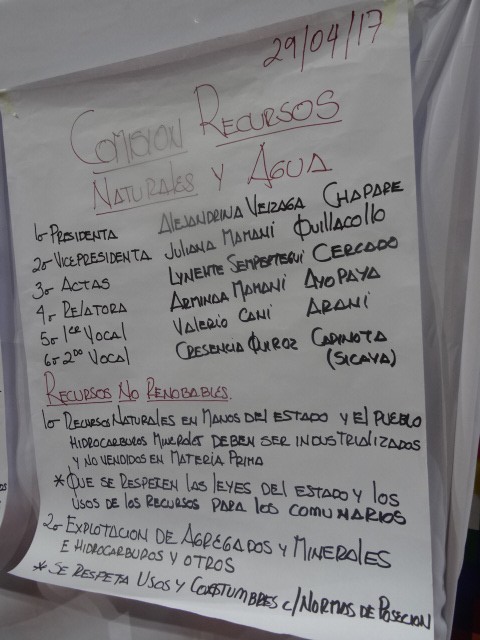 29/04/17
COMISION RECURSOS
NATURALES Y AGUA
1o PRESIDENTA ALEJANDRINA VEIZAGA CHAPARE
2o VICEPRESIDENTA JULIANA MAMANI QUILLACOLLO
3o ACTAS LYNETTE SEMPERTEGUI CERCADO
4o RELATORA ARMINDA MAMANI AYOPAYA
5o 1er VOCAL VALERIO CANI ARANI
6o 2do VOCAL CRESENCIA QUIROZ CAPINOTA
(SICAYA)
RECURSOS NO RENOBABLES.
1o RECURSOS NATURALES EN MANOS DEL ESTADO Y EL PUEBLO
HIDROCARBUROS MINERALES DEBEN SER INDUSTRIALIZADOS
Y NO VENDIDOS EN MATERIA PRIMA
* QUE SE RESPETEN LAS LEYES DEL ESTADO Y LOS
USOS DE LOS RECURSOS PARA LOS COMUNARIOS
2o EXPLOTACION DE AGREGADOS Y MINERALES
E HIDROCARBUROS Y OTROS
* SE RESPETA USOS Y COSTUMBRES C/NORMAS DE POSECION